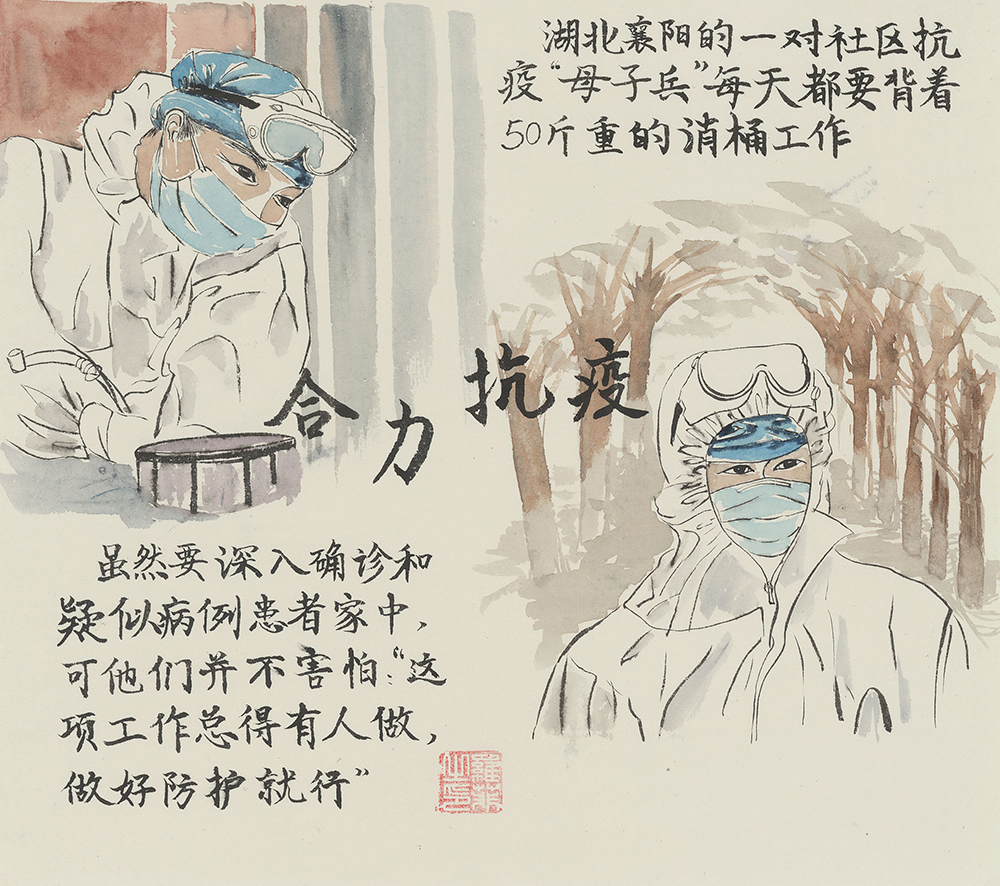 湖北襄阳的一对社区抗
疫“母子兵”每天都要背着
50斤重的消桶工作
合力抗疫
虽然要深入确诊和
疑似病例患者家中，
可他们并不害怕：“这
项工作总得有人做，
做好防护就行”